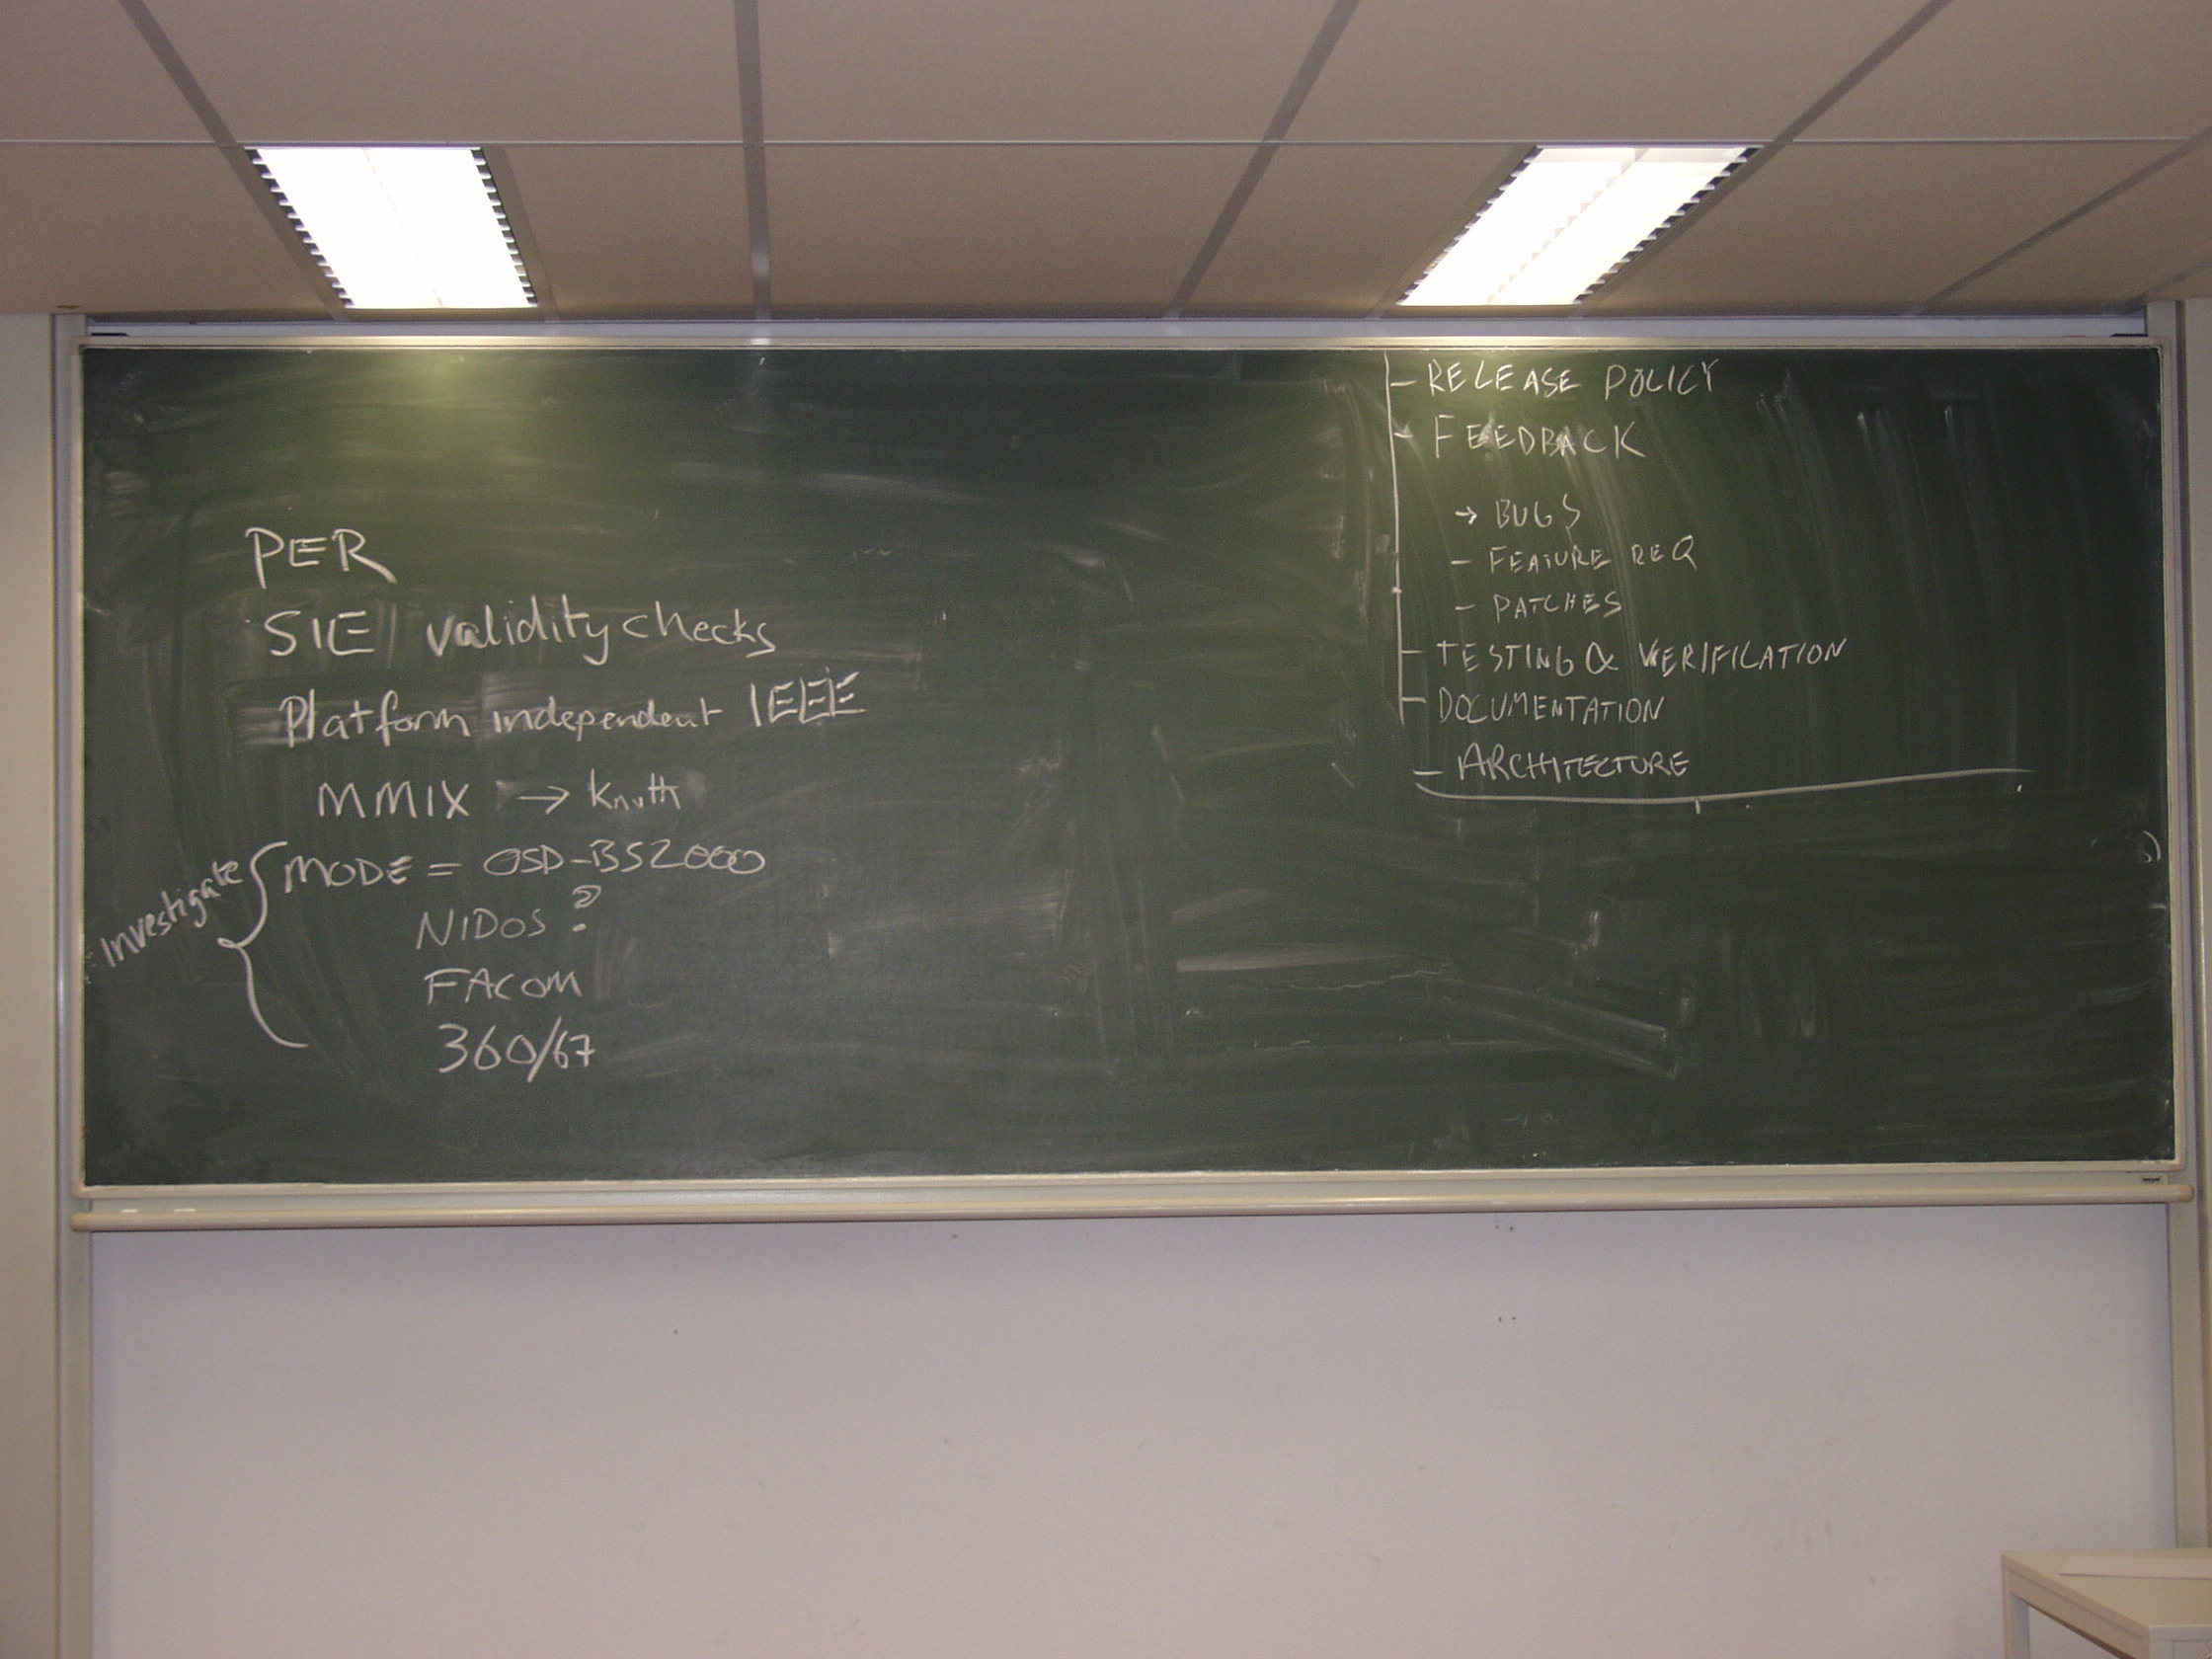 PER
SIE validity checks
Platform independent IEEE
MMIX → Knuth
Investigate
MODE = OSD-BS2000
NIDOS ?
FACOM
360/67
- RELEASE POLICY
- FEEDBACK
→ BUGS
- FEATURE REQ
- PATCHES
- TESTING & VERIFICATION
- DOCUMENTATION
- ARCHITECTURE